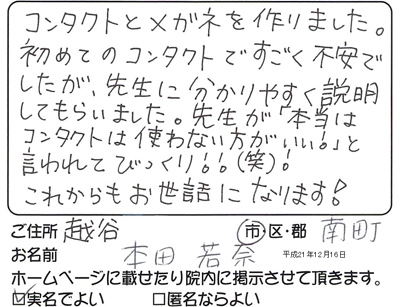 コンタクトとメガネを作りました。
初めてのコンタクトですごく不安で
したが、先生に分かりやすく説明
してもらいました。先生が「本当は
コンタクトは使わない方がいい!」と
言われてびっくり!!(笑)!
これからもお世話になります!
ご住所 越谷 市・区・郡 南町
お名前 本田 若奈 平成21年12月16日
ホームページに載せたり院内に掲示させて頂きます。
☑実名でよい □匿名ならよい